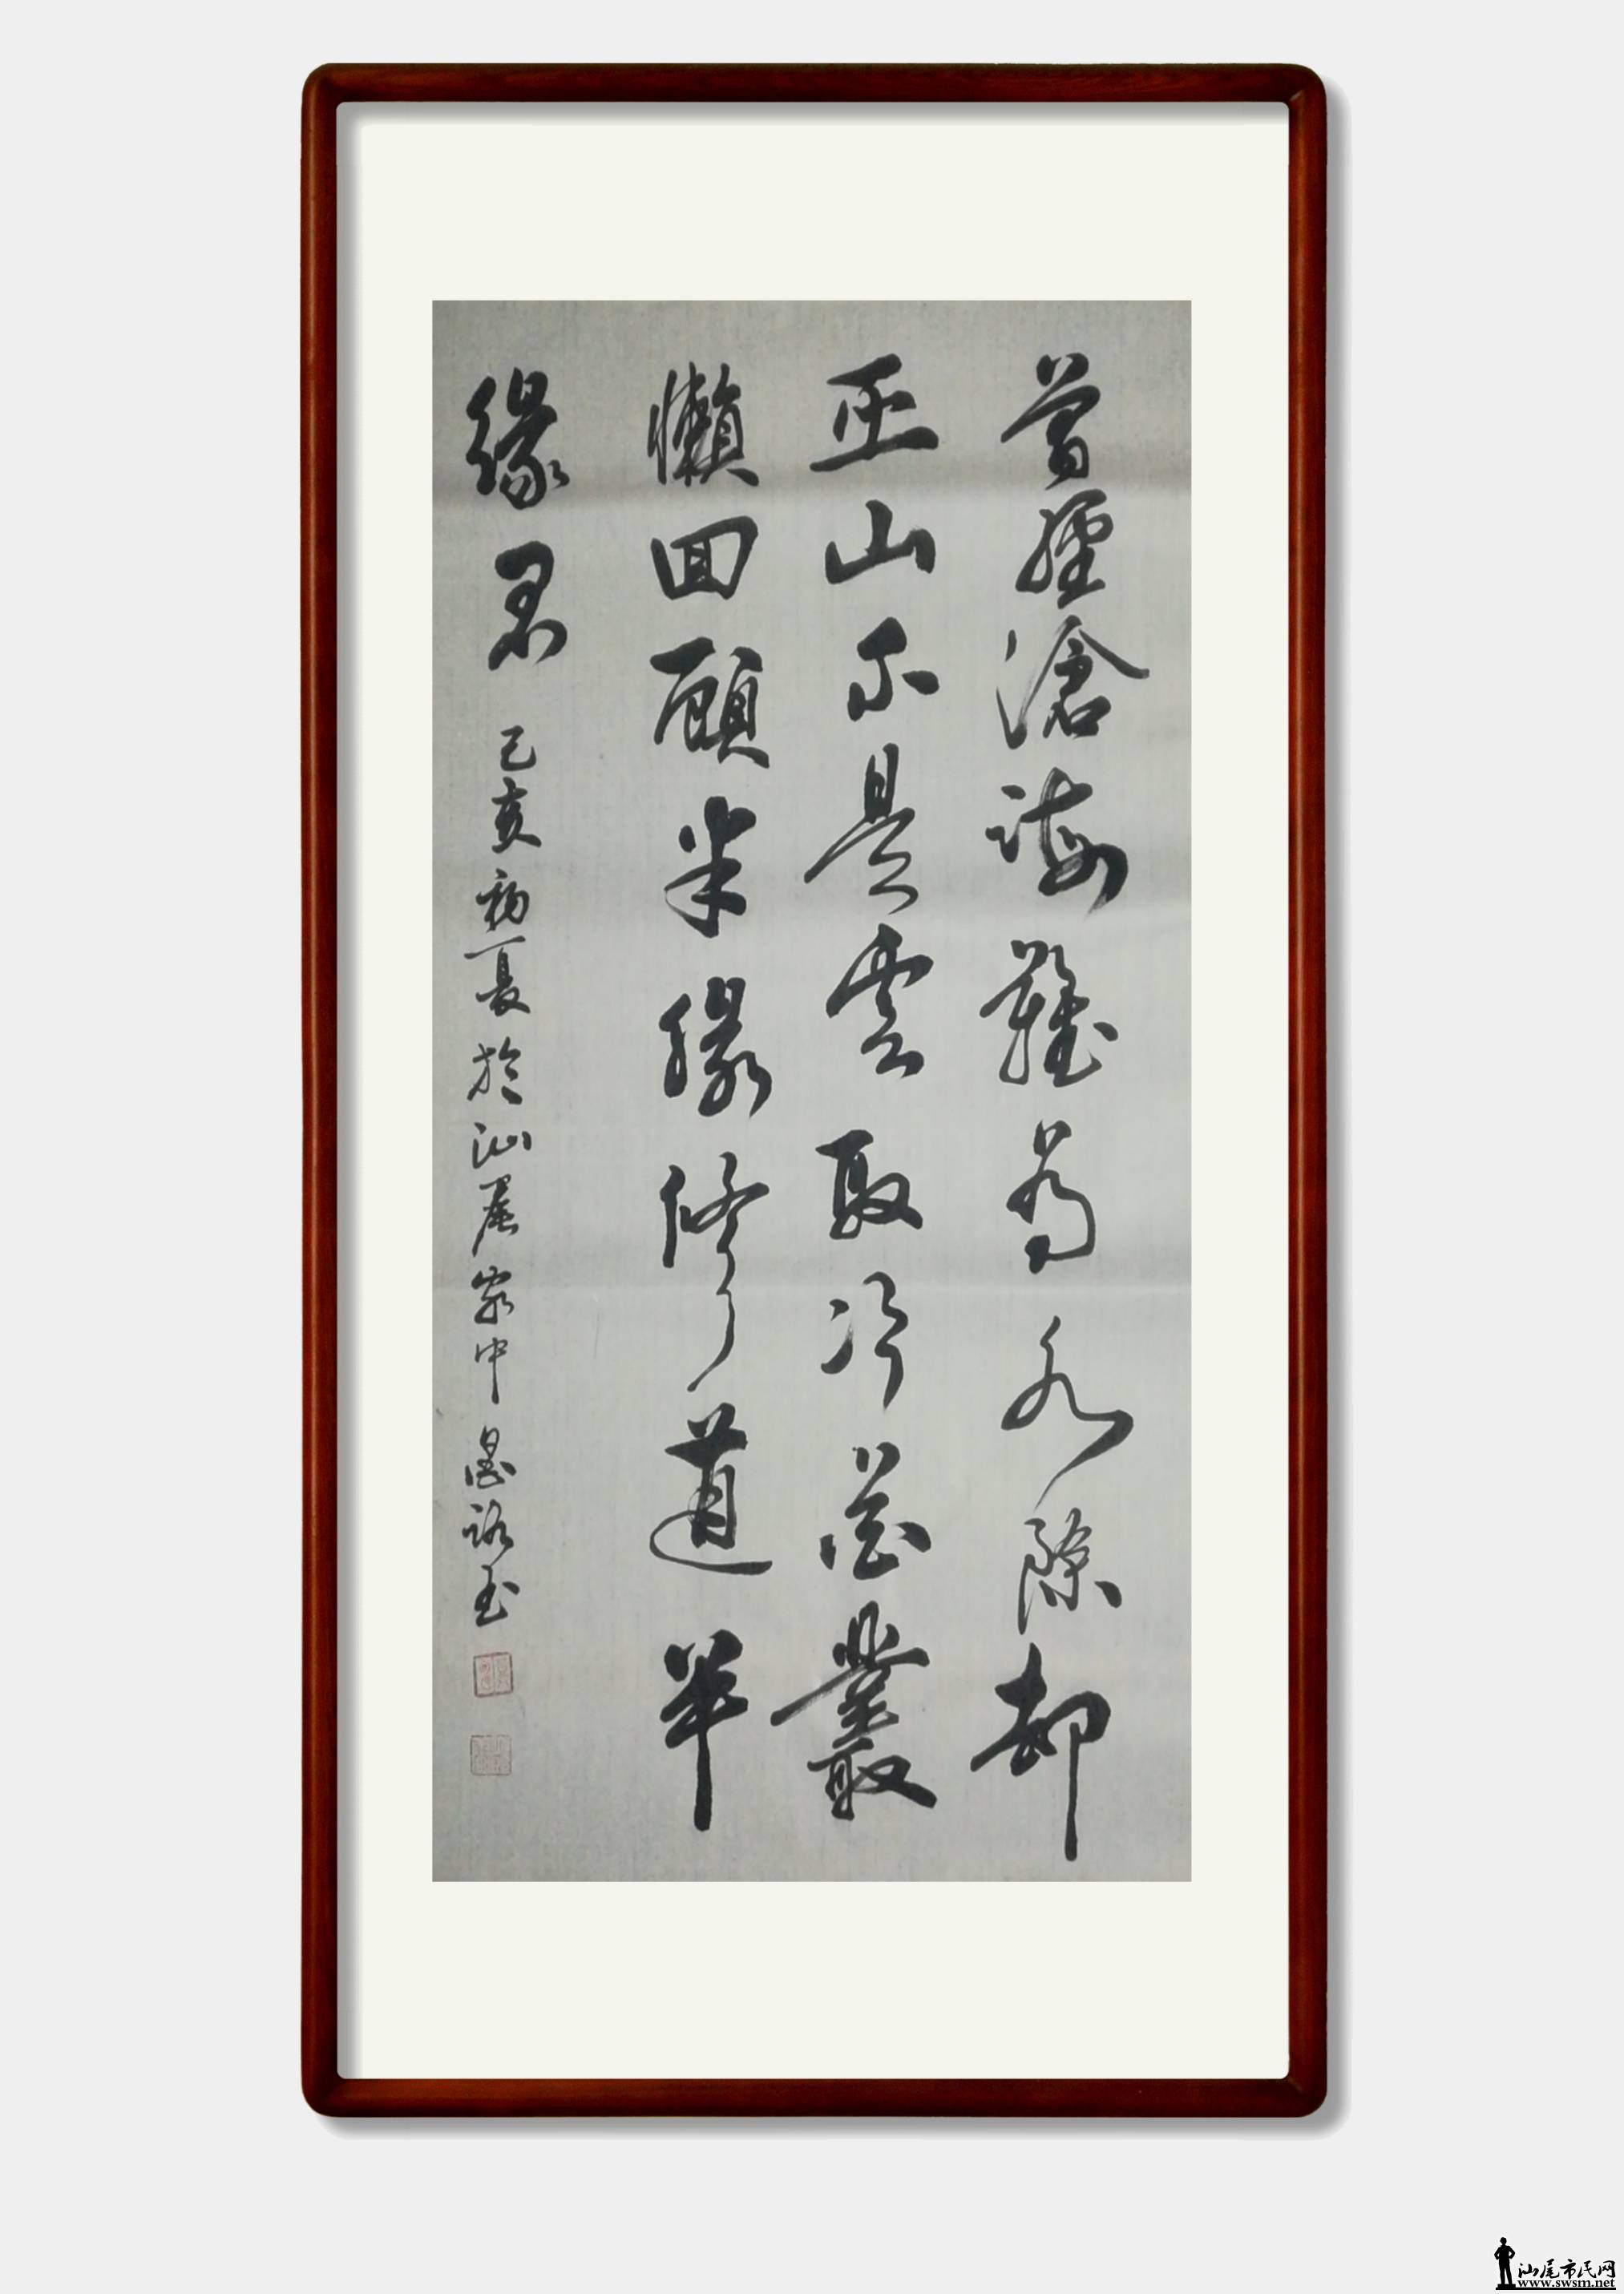 曾經滄海難為水除却
巫山不是雲取次花叢
懶回顧半緣修道半
緣君 己亥初夏於汕尾家中
汕尾市民网
www.swsm.net